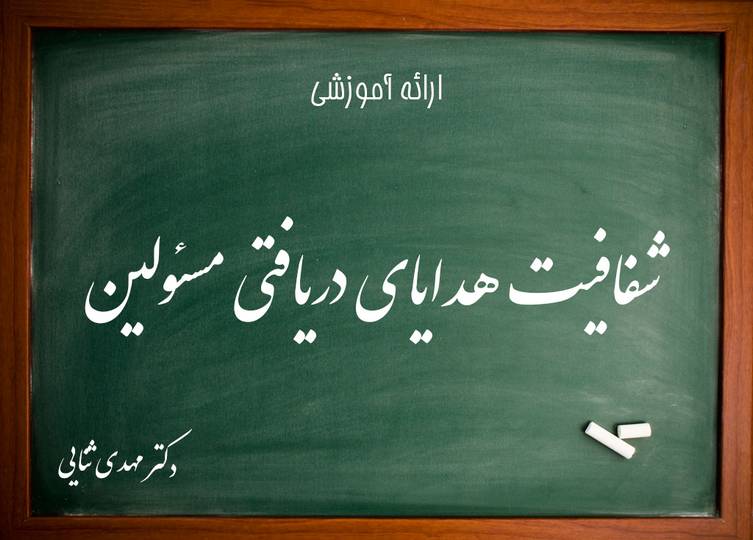 ارائه آموزشی
شفافیت هدایای دریافتی مسئولین
دکتر مهدی ثنایی